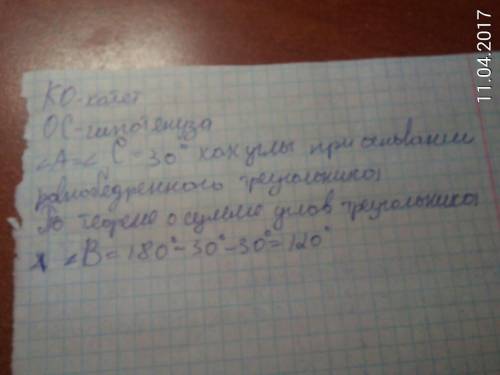 КО-катет
ОС-гипотенуза
∠A=∠ C-30° как углы при основании
равнобедренного треугольника
По теореме о сумме углов треугольника
∠B=180°-30°-30°=120°
11.04.2017